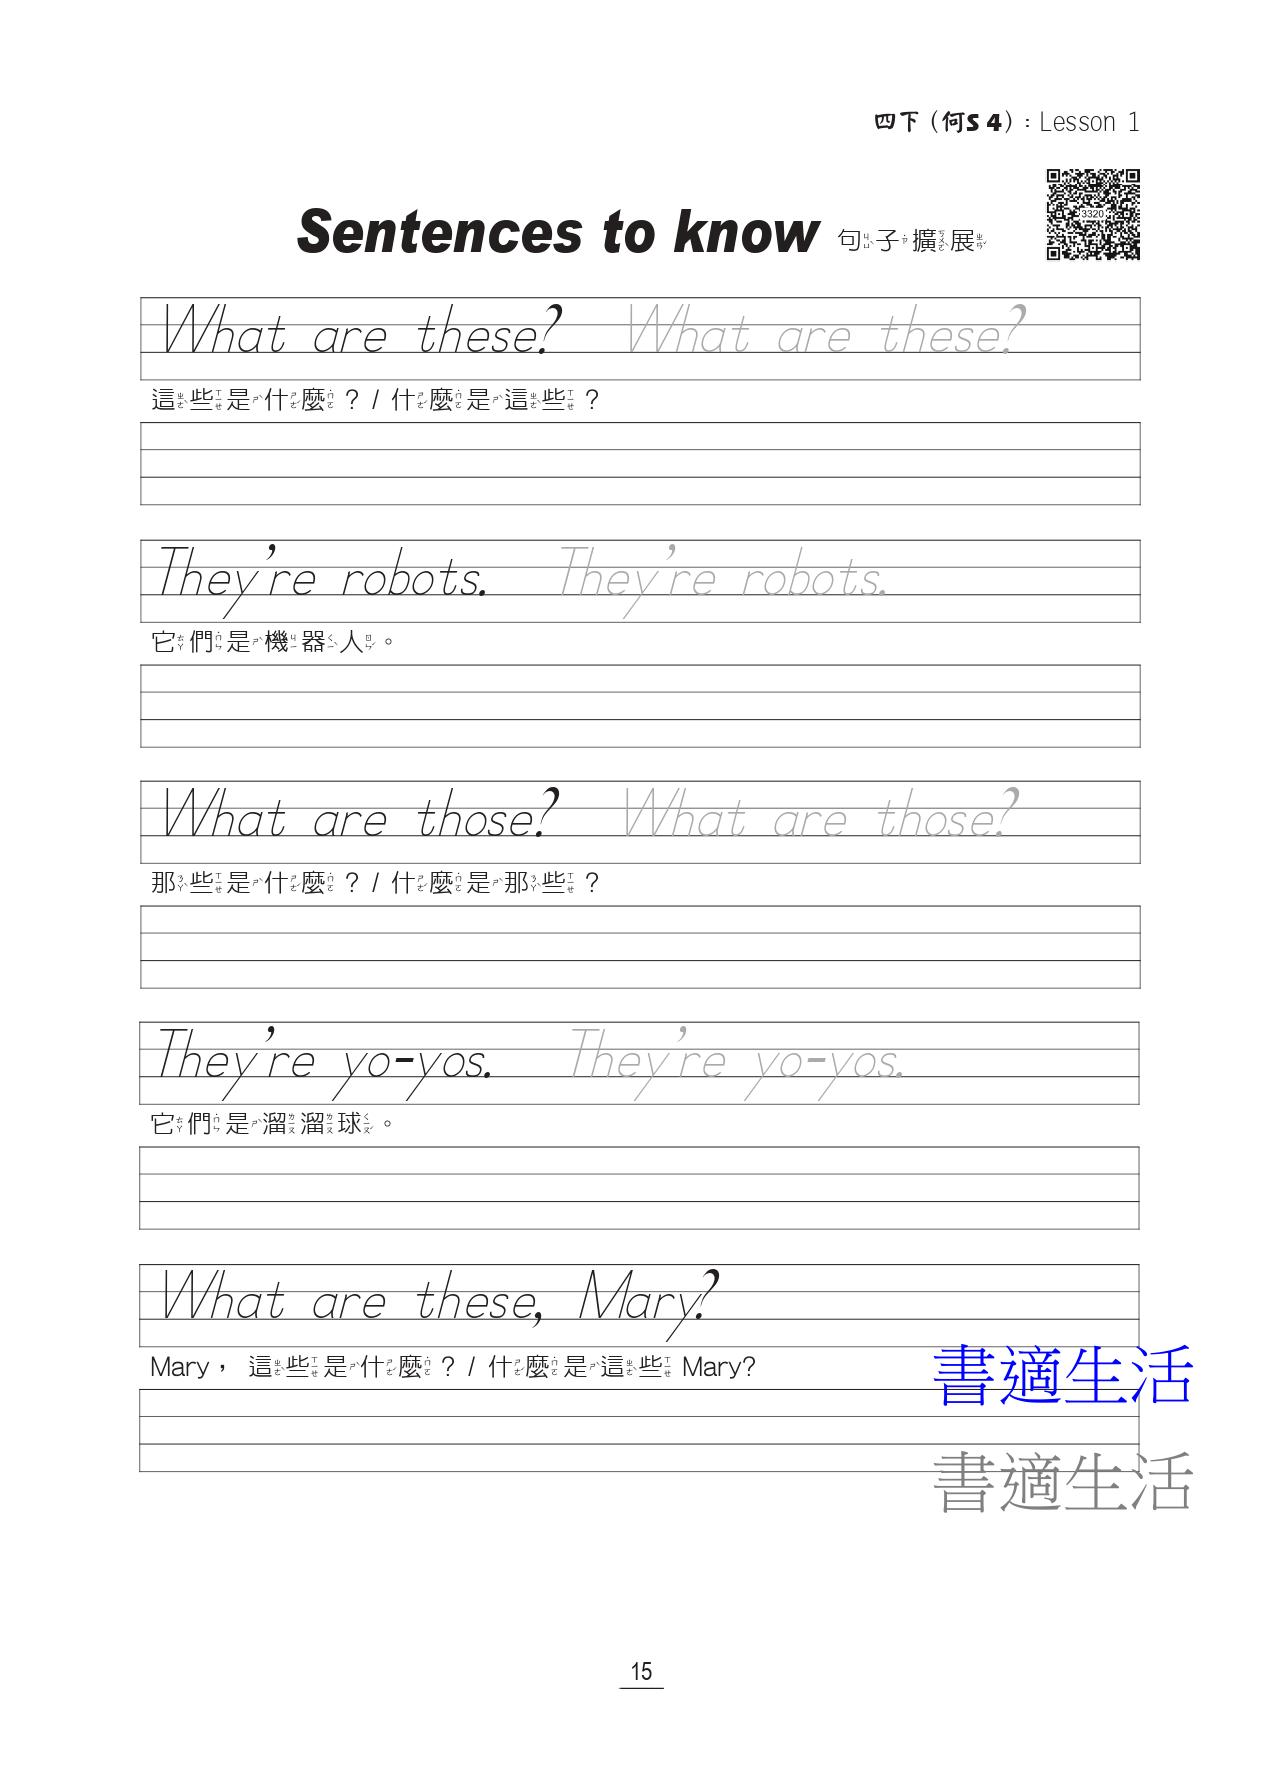 四下（何S 4）：Lesson 1
3320
Sentences to know 句子擴展
What are these? What are these?
這些是什麼？/ 什麼是這些？
They're robots. They're robots.
它們是機器人。
What are those? What are those?
那些是什麼？/ 什麼是那些？
They're yo-yos. They're yo-yos.
它們是溜溜球。
What are these, Mary?
Mary， 這些是什麼？/ 什麼是這些 Mary?
書適生活
書適生活
15